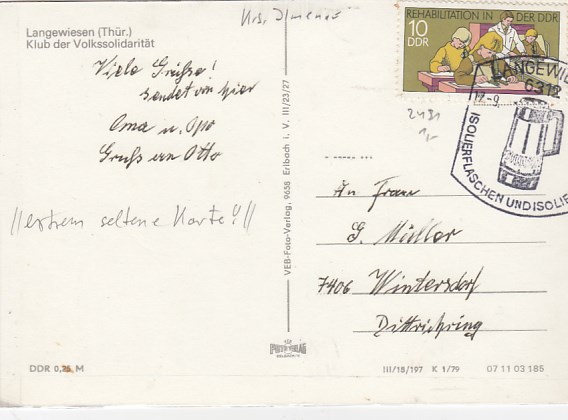 Krs. Ilmenau
Langewiesen (Thür.)
Klub der Volkssolidarität
Viele Grüße!
sendet von hier
Oma u. Opa
Gruß an Otto
//extrem seltene Karte!!//
VEB-Foto-Verlag, 9658 Erlbach i. V. III/23/27
REHABILITATION IN DER DDR
10
DDR
LANGEWIE
6312
12.-9.
ISOLIERFLASCHEN UND ISOLIE
2431
1,-
An Frau
G. Müller
7406 Wintersdorf
Dittrichring
FOTO-VERLAG
DDR 0,25 M
III/18/197 K 1/79 07 11 03 185